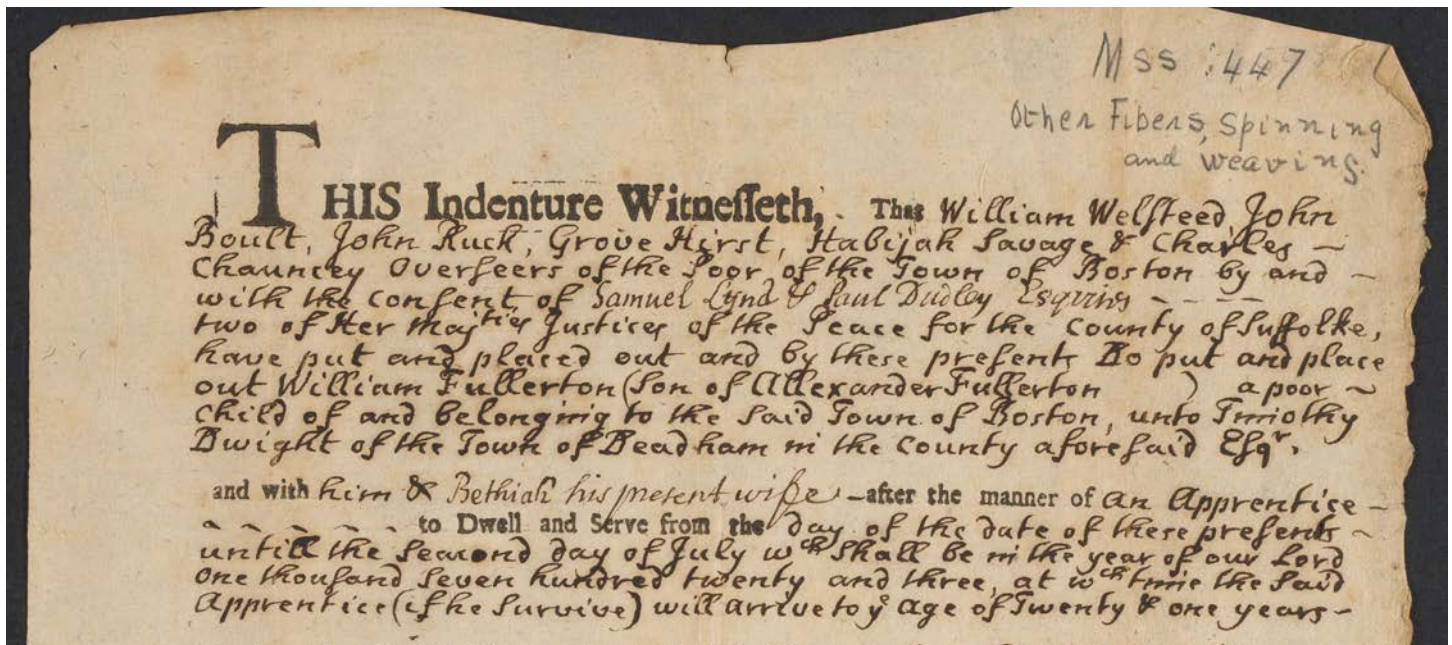 Mss : 447
Other Fibers, Spinning
and weaving.
THIS Indenture Witnesseth, That William Welsteed John
Boult, John Ruck, Grove Hirst, Habijah Savage & Charles
Chauncey Overseers of the Poor, of the Town of Boston by and
with the consent of Samuel Lynd & Paul Dudley Esquires
two of Her Majties Justices of the Peace for the County of Suffolke,
have put and placed out and by these presents Do put and place
out William Fullerton (Son of Allexander Fullerton ) a poor
Child of and belonging to the Said Town of Boston, unto Timothy
Dwight of the Town of Deadham in the County aforesaid Esqr.
and with him & Bethiah his present wife - after the manner of an Apprentice
to Dwell and Serve from the day of the date of these presents
untill the Second day of July wch Shall be in the year of our Lord
One thousand Seven hundred twenty and three, at wch time the Said
Apprentice (if he Survive) will arrive to ye Age of Twenty & one years